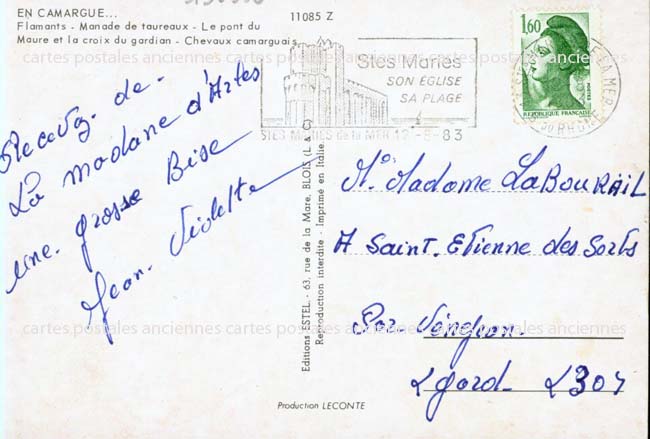 EN CAMARGUE...
Flamants - Manade de taureaux - Le pont du
Maure et la croix du gardian - Chevaux camarguais
11085 Z
Stes Maries
SON ÉGLISE
SA PLAGE
STES MARIES de la MER 12 -8-83
1,60
POSTES
REPUBLIQUE FRANÇAISE
cartes postales anciennes cartes postales anciennes cartes postales anciennes
Recevez. de.
La madame d'Arles
une. grosse Bise
Jean. Violette
Editions ESTEL - 63, rue de la Mare, BLOIS (L & C)
Reproduction interdite - Imprimé en Italie
Mr Madame LaBOURAIL
A Saint. Etienne des Sorts
Par Vénéjean.
Lgard L307
cartes postales anciennes cartes postales anciennes cartes postales anciennes
Production LECONTE